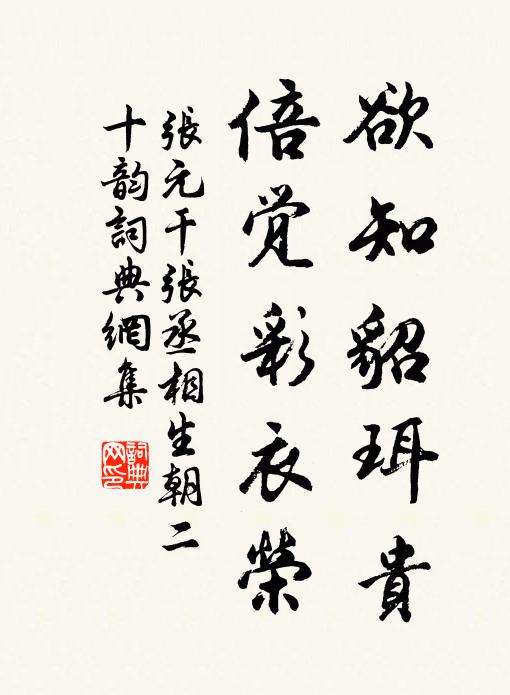 欲知貂珥貴
倍覺彩衣榮
張元干張丞相生朝二
十韵詞典網集
詞典網印